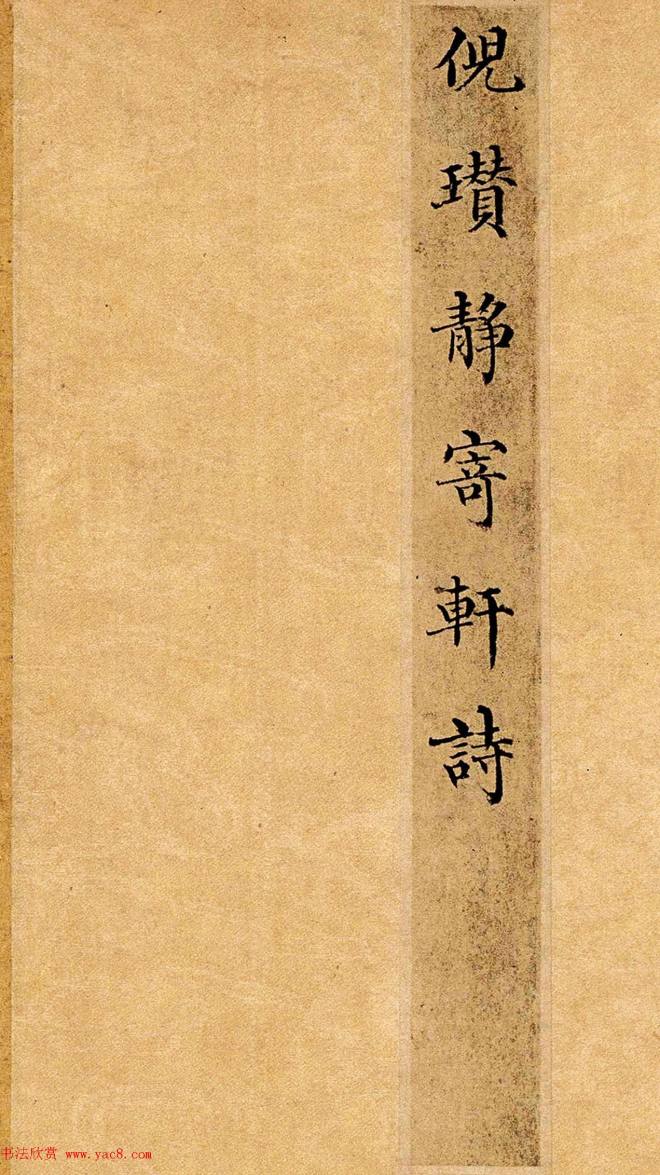 倪瓚静寄軒詩
书法欣赏 www.yac8.com